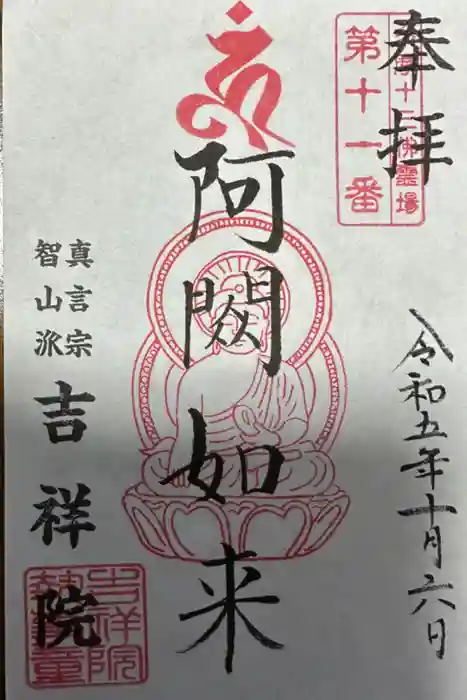 奉拝
第十一番
十三佛霊場
令和五年十月六日
阿閦如来
真言宗
智山派
吉祥院
吉祥院